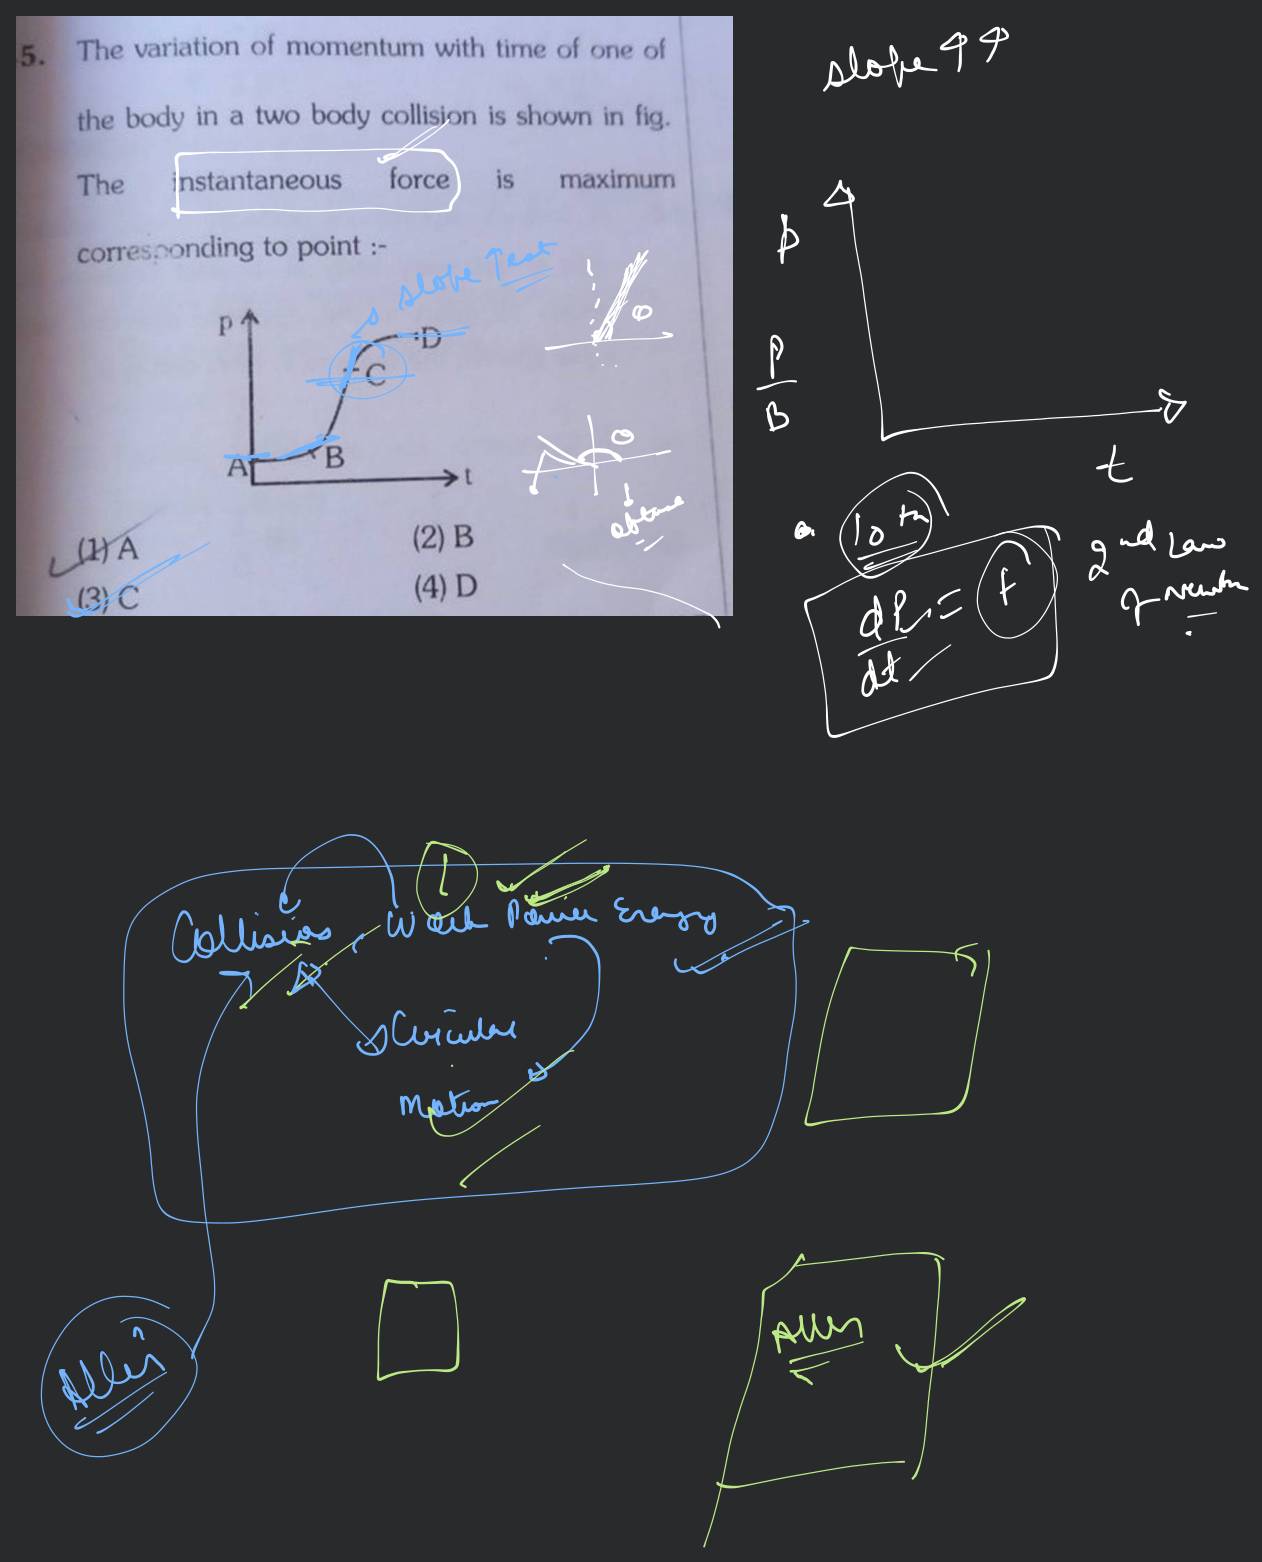 5. The variation of momentum with time of one of
the body in a two body collision is shown in fig.
The instantaneous force is maximum
corresponding to point :-
slope
slope
p
D
C
B
A
t
θ
θ
obtuse
(1) A
(2) B
(3) C
(4) D
p
P
B
t
10th
dP/dt = F
2nd Law
of Newton
1
Collisions, Work Power Energy
Circular
Motion
Allen
Allen